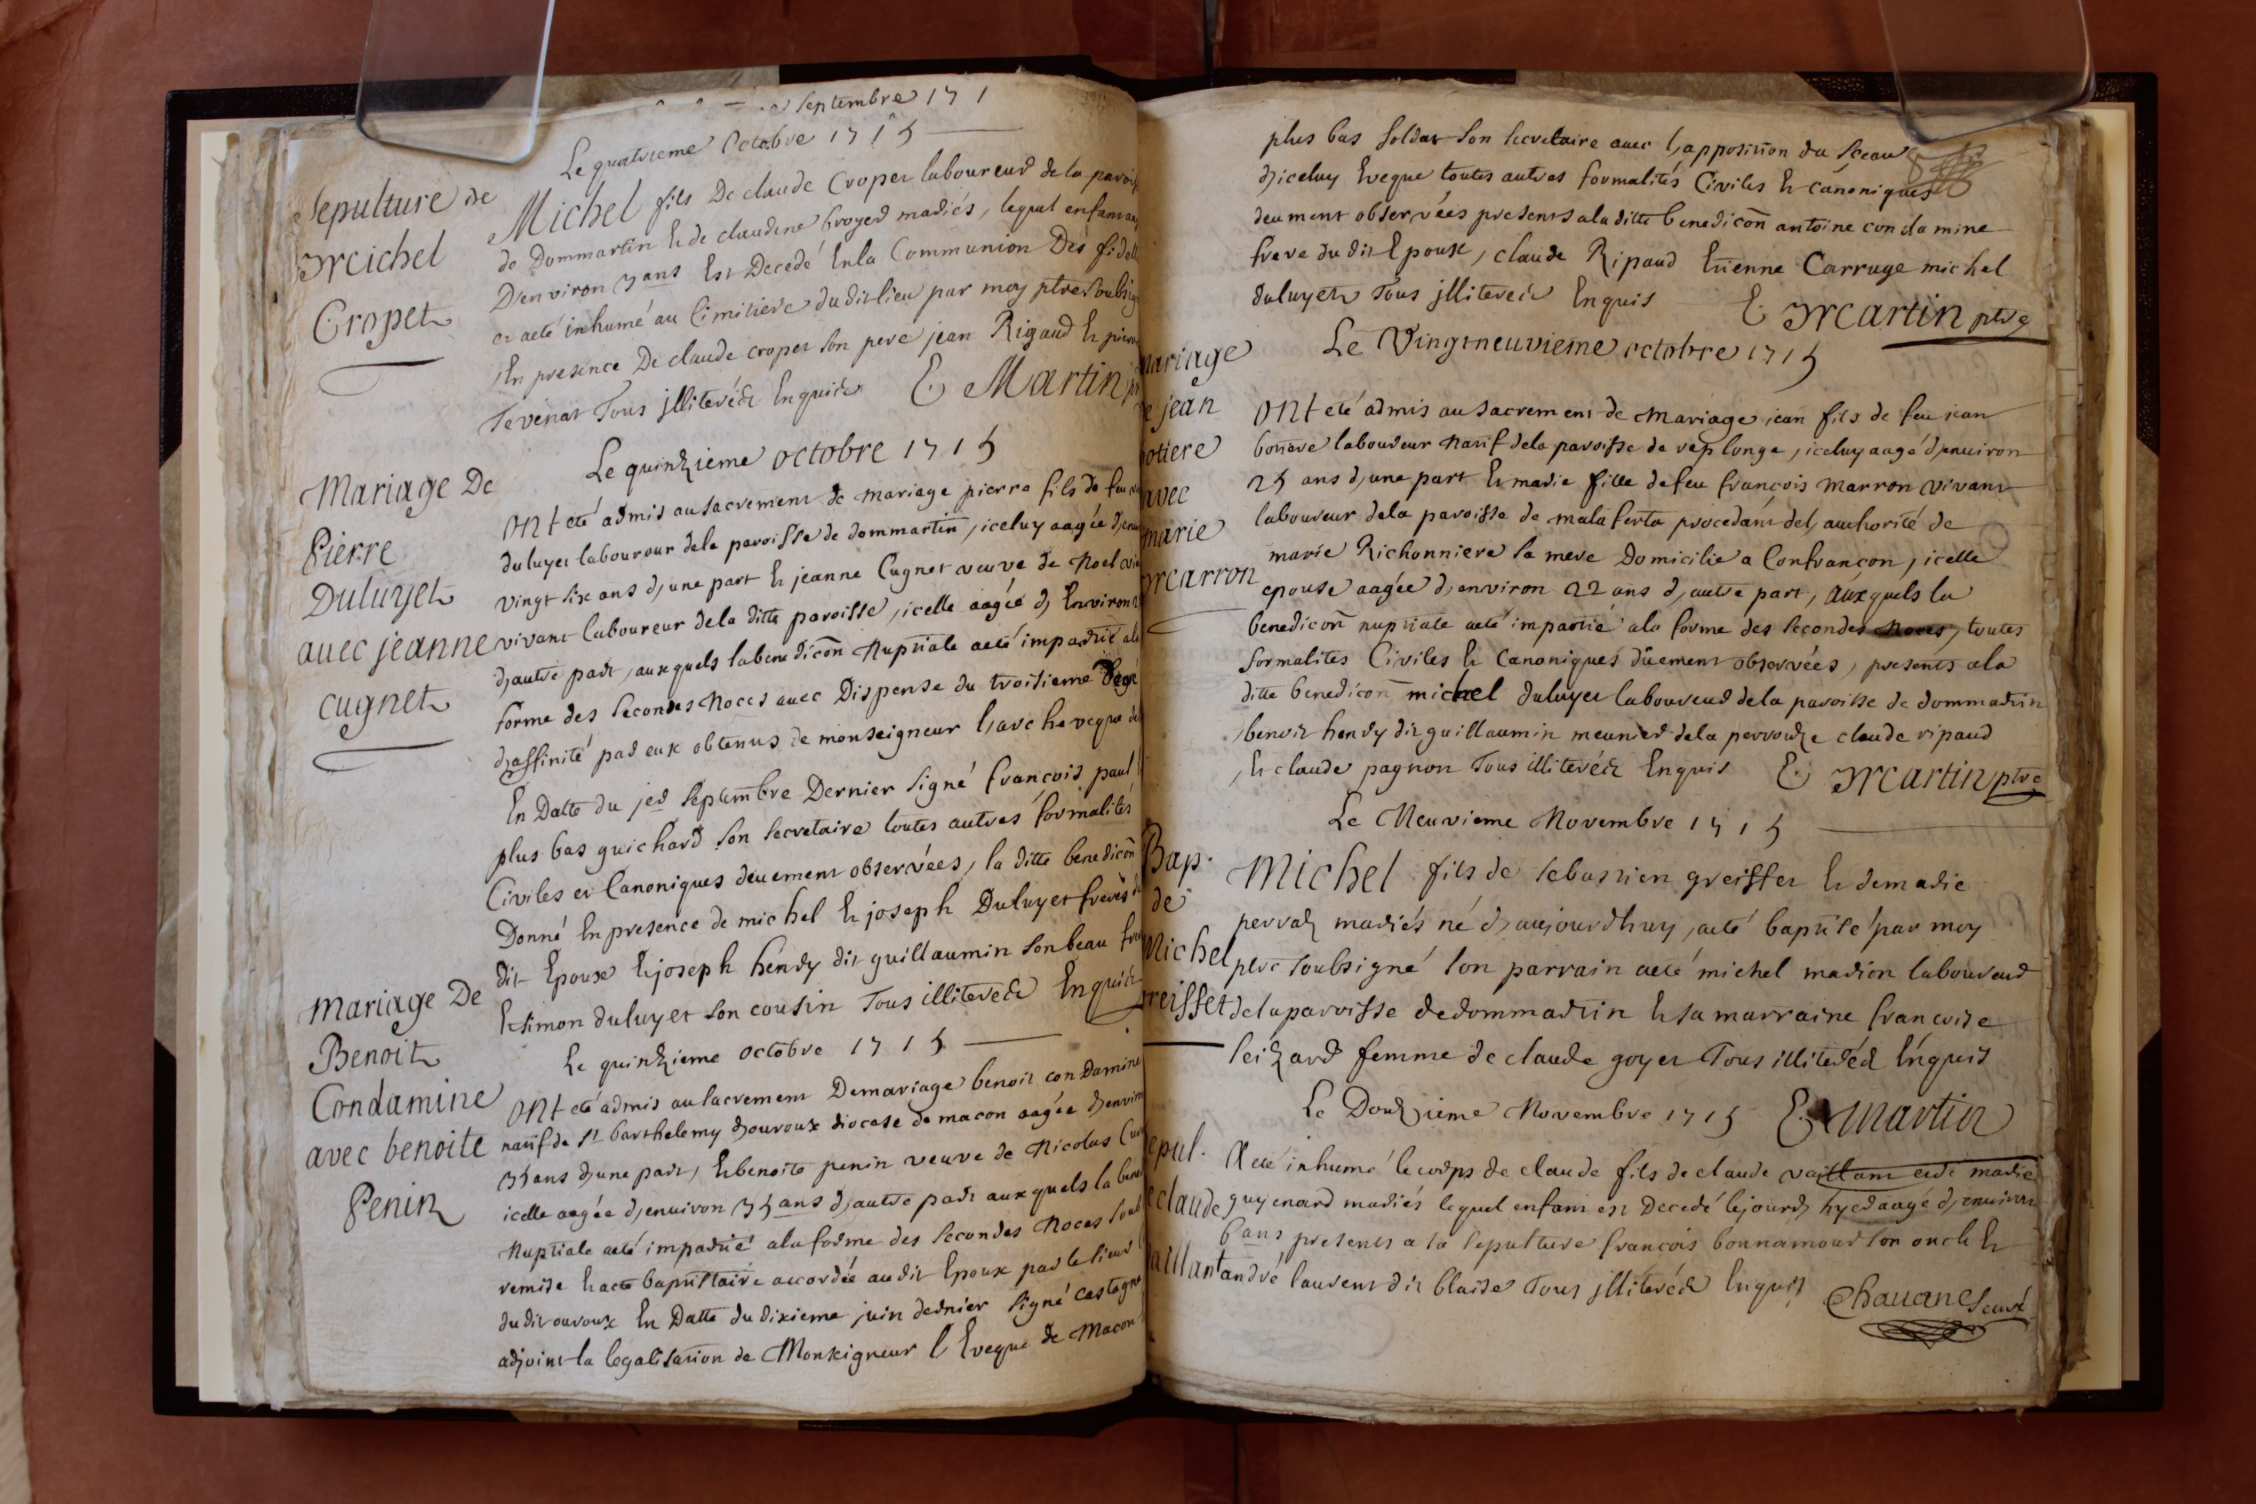 septembre 171
Le quatrieme Octobre 1715
Sepulture de
Michel
Cropet
Michel fils De claude Cropet laboureur de la
de Dommartin et de claudine broyer mariés, lequel enfant
D'environ 7 ans Est Decedé En la Communion Des fidel
et a eté inhumé au Cimitiere du dit lieu par moy ptre soubsig
En presence De claude cropet son pere jean Rigaud Et
Tevenat Tous jlliterés Enquis E Martin
Le quinzieme octobre 1715
Mariage De
Pierre
Duluyet
avec jeanne
cugnet
ont eté admis au sacrement de mariage pierre fils de feu
duluyet laboureur dela paroisse de dommartin, iceluy aagée d'env
vingt six ans d'une part Et jeanne Cugnet veuve de Noel
vivant laboureur dela ditte paroisse, icelle aagée d'Environ
d'autre part, auxquels la benedicõn Nuptiale a eté impartie a la
forme des secondes Noces avec Dispense du troisieme Degré
d'affinité par eux obtenus de monseigneur l'archeveque de
En Datte du jer septembre Dernier signé françois paul
plus bas guichard son secretaire toutes autres formalités
Civiles et Canoniques deuement observées, la ditte benedicõn
Donné En presence de michel Et joseph Duluyet freres du
dit Epoux Et joseph hendy dit guillaumin son beau
Et simon duluyet son cousin Tous illiterés Enquis
Le quinzieme octobre 1715
Mariage De
Benoit
Condamine
avec benoite
Penin
ont eté admis au sacrement De mariage benoit condamine
natif de St barthelemy d'ouroux diocese de macon aagée d'envir
35 ans d'une part, Et benoite penin veuve de Nicolas
icelle aagée d'environ 35 ans d'autre part auxquels la bene
Nuptiale a eté impartie a la forme des secondes Noces
remise Et acte baptistaire accordée au dit Epoux par le sieur
du dit ouroux En Datte du dixieme juin dernier signé castagne
adjoint la legalisation de Monseigneur l'Eveque de Macon
plus bas soldat son secretaire avec l'apposition du sceau
d'iceluy Eveque toutes autres formalités Civiles Et canoniques
deument observées presents a la ditte benedicõn antoine condamine
frere du dit Epoux, claude Ripaud Etienne Carruge michel
duluyet Tous jlliterés Enquis E Martin ptre
Le Vingtneuvieme octobre 1715
mariage
de jean
botiere
avec
marie
Marron
ont eté admis au sacrement de mariage jean fils de feu jean
botiere laboureur Natif dela paroisse de replonge, iceluy aagé d'environ
25 ans d'une part Et marie fille de feu françois marron vivant
laboureur dela paroisse de malaferta procedant del'authorité de
marie Richonniere sa mere Domicilié a Confrançon, icelle
epouse aagée d'environ 22 ans d'autre part, auxquels la
benedicõn nuptiale a eté impartié a la forme des secondes Noces, toutes
formalites Civiles Et Canoniques düement observées, presents a la
ditte benedicõn michel duluyet laboureur dela paroisse de dommartin
benoit hendy dit guillaumin meunier dela perrouze claude ripaud
Et claude pagnon Tous illiterés Enquis E Martin ptre
Le Neuvieme Novembre 1715
Bap.
de
Michel
greisset
Michel fils de sebastien greisset Et de marie
perraz mariés né d'aujourdhuy, a eté baptisé par moy
ptre soubsigné son parrain a eté michel marion laboureur
de la paroisse de dommartin Et sa marraine françoise
seizard femme de claude goyet Tous illiterés Enquis
Le Douzieme Novembre 1715 E Martin
sepul.
de claude
vaillant
A eté inhumé le corps de claude fils de claude vaillant et de marie
guyenard mariés lequel enfant est Decedé le jourd'hyer aagé d'environ
6 ans presents a la sepulture françois bonnamour son oncle Et
andré laurent dit blaise Tous jlliterés Enquis
Chavanes curé